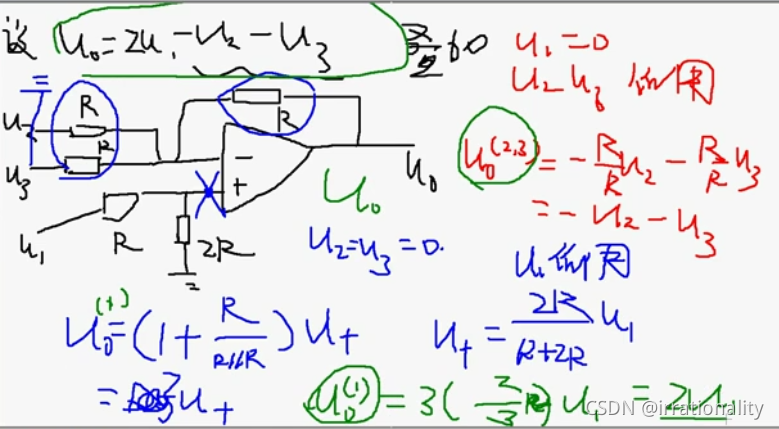 设 U₀=2U₁-U₂-U₃
U₁=0
U₂ U₃ 作用
R
R
U₂
R
U₃
-
+
U₀
U₀⁽²,³⁾ = -R/R U₂ - R/R U₃
= -U₂ - U₃
U₀
U₁
R
2R
U₂=U₃=0.
U₁ 作用
U₀⁽¹⁾=(1+R/R∥R)U₊
U₊=2R/R+2R U₁
=3U₊
U₀⁽¹⁾=3(2/3)U₁=2U₁
CSDN @irrationality